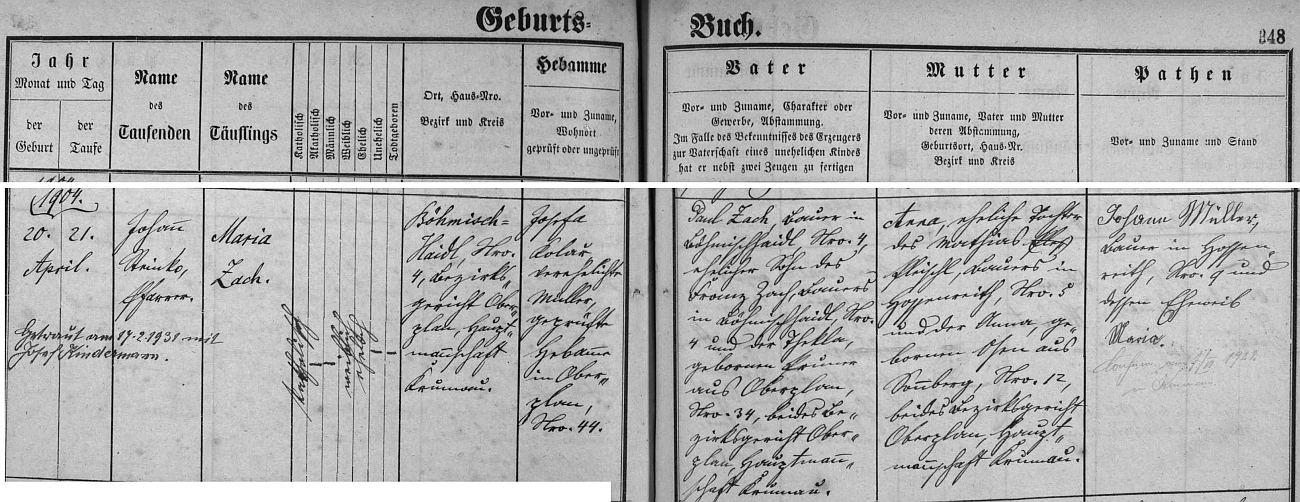 Geburts=
Buch.
348
Jahr
Monat und Tag
der
Geburt
der
Taufe
Name
des
Taufenden
Name
des
Täuflings
Katholisch
Akatholisch
Männlich
Weiblich
Ehelich
Unehelich
Todtgeboren
Ort, Haus-Nro.
Bezirk und Kreis
Hebamme
Vor- und Zuname,
Wohnort
geprüft oder ungeprüft
Vater
Vor- und Zuname, Charakter oder
Gewerbe, Abstammung.
Im Falle des Bekenntnisses des Erzeugers
zur Vaterschaft eines unehelichen Kindes
hat er nebst zwei Zeugen zu fertigen
Mutter
Vor- und Zuname, Vater und Mutter
deren Abstammung,
Geburtsort, Haus-Nr.
Bezirk und Kreis
Pathen
Vor- und Zuname und Stand
1904.
20. 21.
April.
Johann
Steinko,
Pfarrer.
Getraut am 17.2.1931 mit
Josef Kindermann.
Maria
Zach.
katholisch
weiblich
ehelich
Böhmisch=
Haidl, Nro.
4, Bezirks=
gericht Ober=
plan, Haupt=
mannschaft
Krumau.
Josefa
Kolar
verehelichte
Müller,
geprüfte
Hebame
in Ober=
plan,
Nro. 44.
Paul Zach, Bauer in
Böhmischhaidl, Nro. 4,
ehelicher Sohn des
Franz Zach, Bauers
in Böhmischhaidl, Nro.
4 und der Thekla,
gebornen Pruner
aus Oberplan,
Nro. 34, beides Be=
zirksgericht Ober=
plan, Hauptmann=
schaft Krumau.
Anna, eheliche Tochter
des Mathias
Fleischl, Bauers in
Hossenreith, Nro. 5
und der Anna, ge=
bornen Osen aus
Sonnberg, Nro. 12,
beides Bezirksgericht
Oberplan, Haupt=
mannschaft Krumau.
Johann Müller,
Bauer in Hossen
reith, Nro. 9 und
dessen Eheweib
Maria.